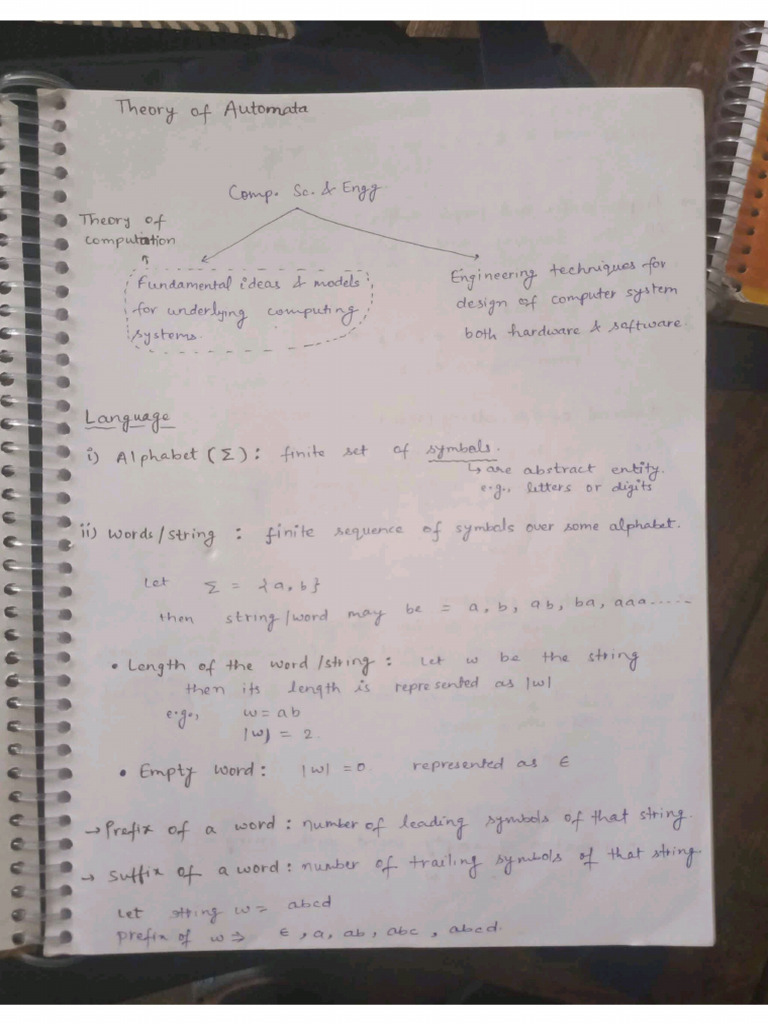 Theory of Automata
Comp. Sc. & Engg
Theory of
computation
Fundamental ideas & models
for underlying computing
systems.
Engineering techniques for
design of computer system
both hardware & software.
Language
i) Alphabet (Σ) : finite set of symbols.
↳ are abstract entity.
e.g., letters or digits
ii) Words/string : finite sequence of symbols over some alphabet.
Let Σ = {a, b}
then string/word may be = a, b, ab, ba, aaa.....
• Length of the word/string : Let w be the string
then its length is represented as |w|
e.g., w = ab
|w| = 2.
• Empty word : |w| = 0 represented as ϵ
→ Prefix of a word : number of leading symbols of that string.
→ Suffix of a word : number of trailing symbols of that string.
Let string w = abcd
prefix of w ⇒ ϵ, a, ab, abc, abcd.